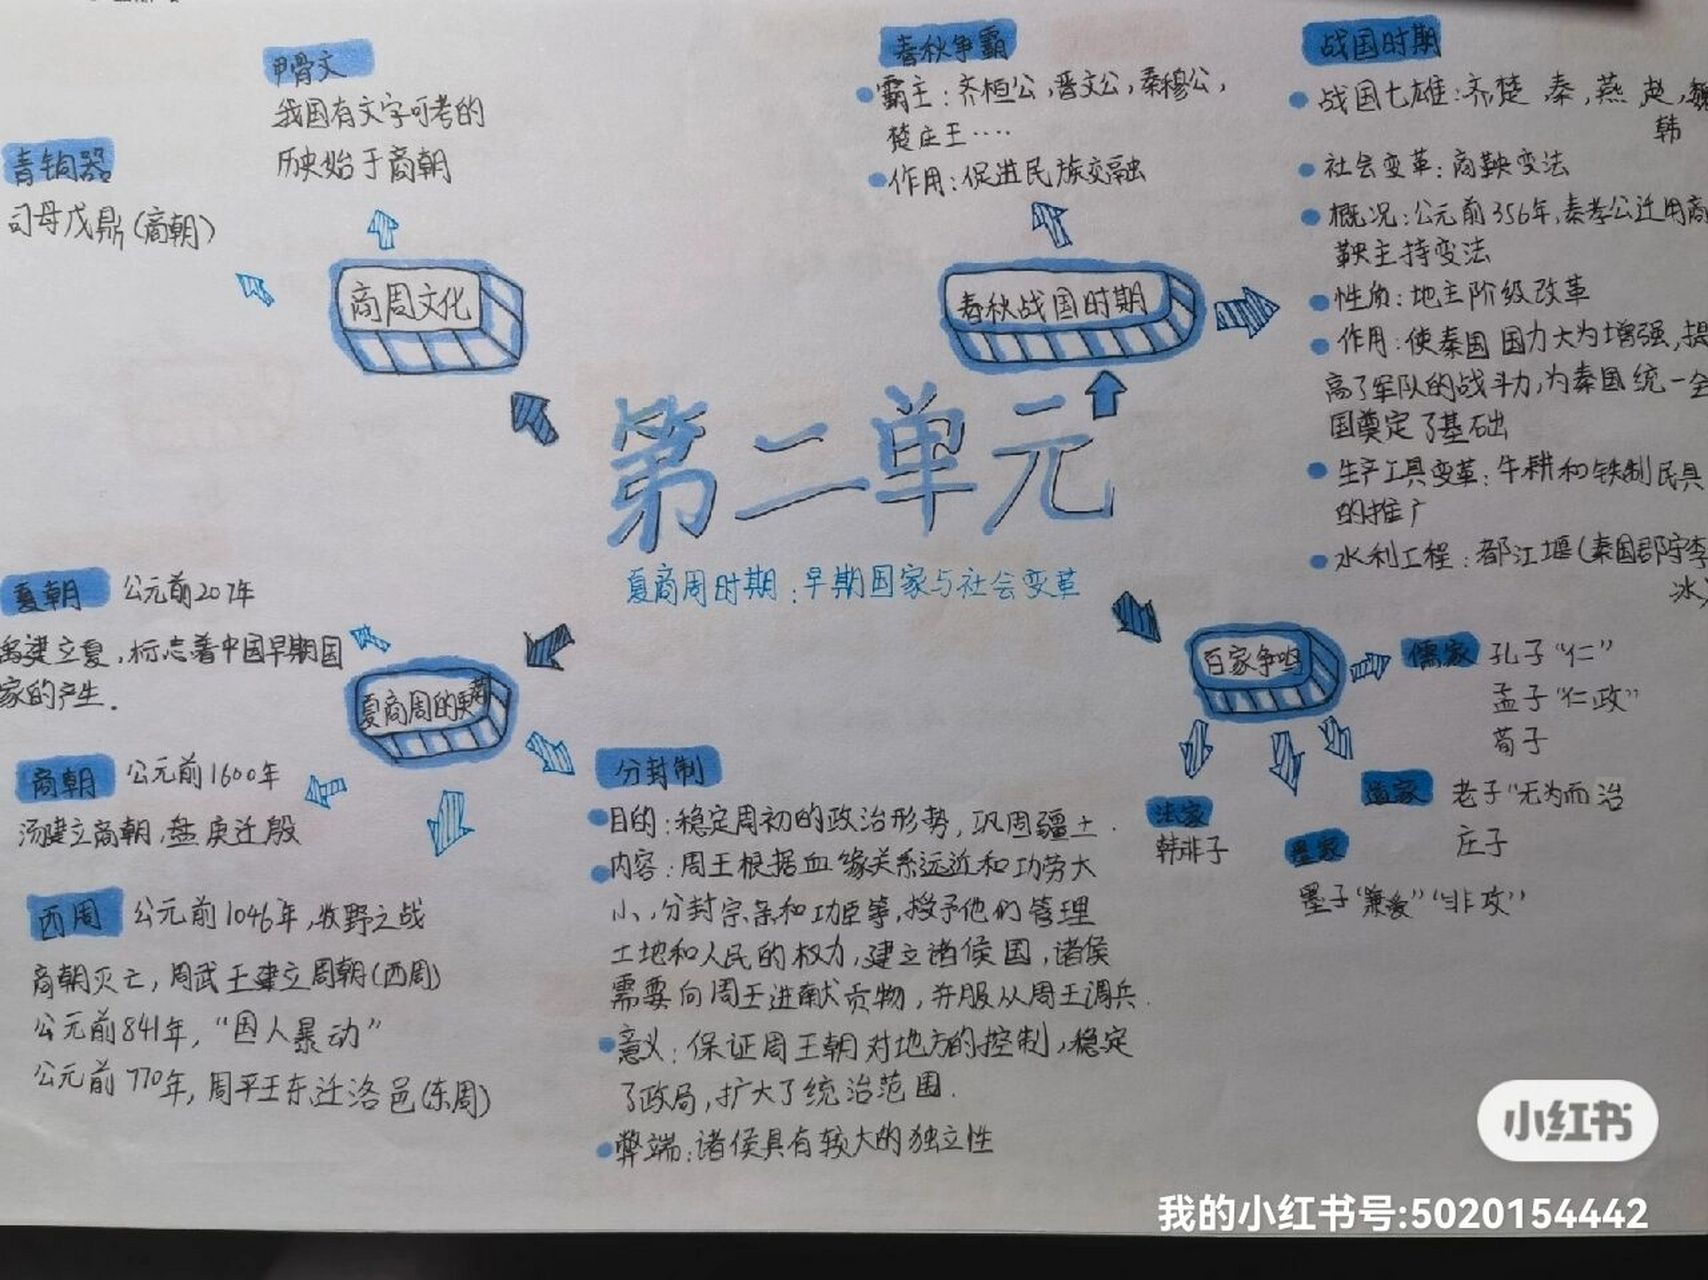 甲骨文
我国有文字可考的
历史始于商朝
青铜器
司母戊鼎(商朝)
商周文化
春秋争霸
霸主:齐桓公,晋文公,秦穆公,
楚庄王····
作用:促进民族交融
春秋战国时期
战国时期
战国七雄:齐,楚,秦,燕,赵,魏
韩
社会变革:商鞅变法
概况:公元前356年,秦孝公迁用商
鞅主持变法
性质:地主阶级改革
作用:使秦国国力大为增强,提
高了军队的战斗力,为秦国统一全
国奠定了基础
生产工具变革:牛耕和铁制民具
的推广
水利工程:都江堰(秦国郡守李
冰)
第二单元
夏商周时期:早期国家与社会变革
夏朝 公元前207年
禹建立夏,标志着中国早期国
家的产生.
夏商周的更替
商朝 公元前1600年
汤建立商朝,盘庚迁殷
西周 公元前1046年,牧野之战
商朝灭亡,周武王建立周朝(西周)
公元前841年,“国人暴动”
公元前770年,周平王东迁洛邑(东周)
分封制
目的:稳定周初的政治形势,巩周疆土.
内容:周王根据血缘关系远近和功劳大
小,分封宗亲和功臣等,授予他们管理
土地和人民的权力,建立诸侯国,诸侯
需要向周王进献贡物,并服从周王调兵.
意义:保证周王朝对地方的控制,稳定
了政局,扩大了统治范围.
弊端:诸侯具有较大的独立性
百家争鸣
儒家 孔子“仁”
孟子“仁政”
荀子
道家 老子“无为而治
庄子
法家
韩非子
墨家
墨子“兼爱”“非攻”
小红书
我的小红书号:5020154442